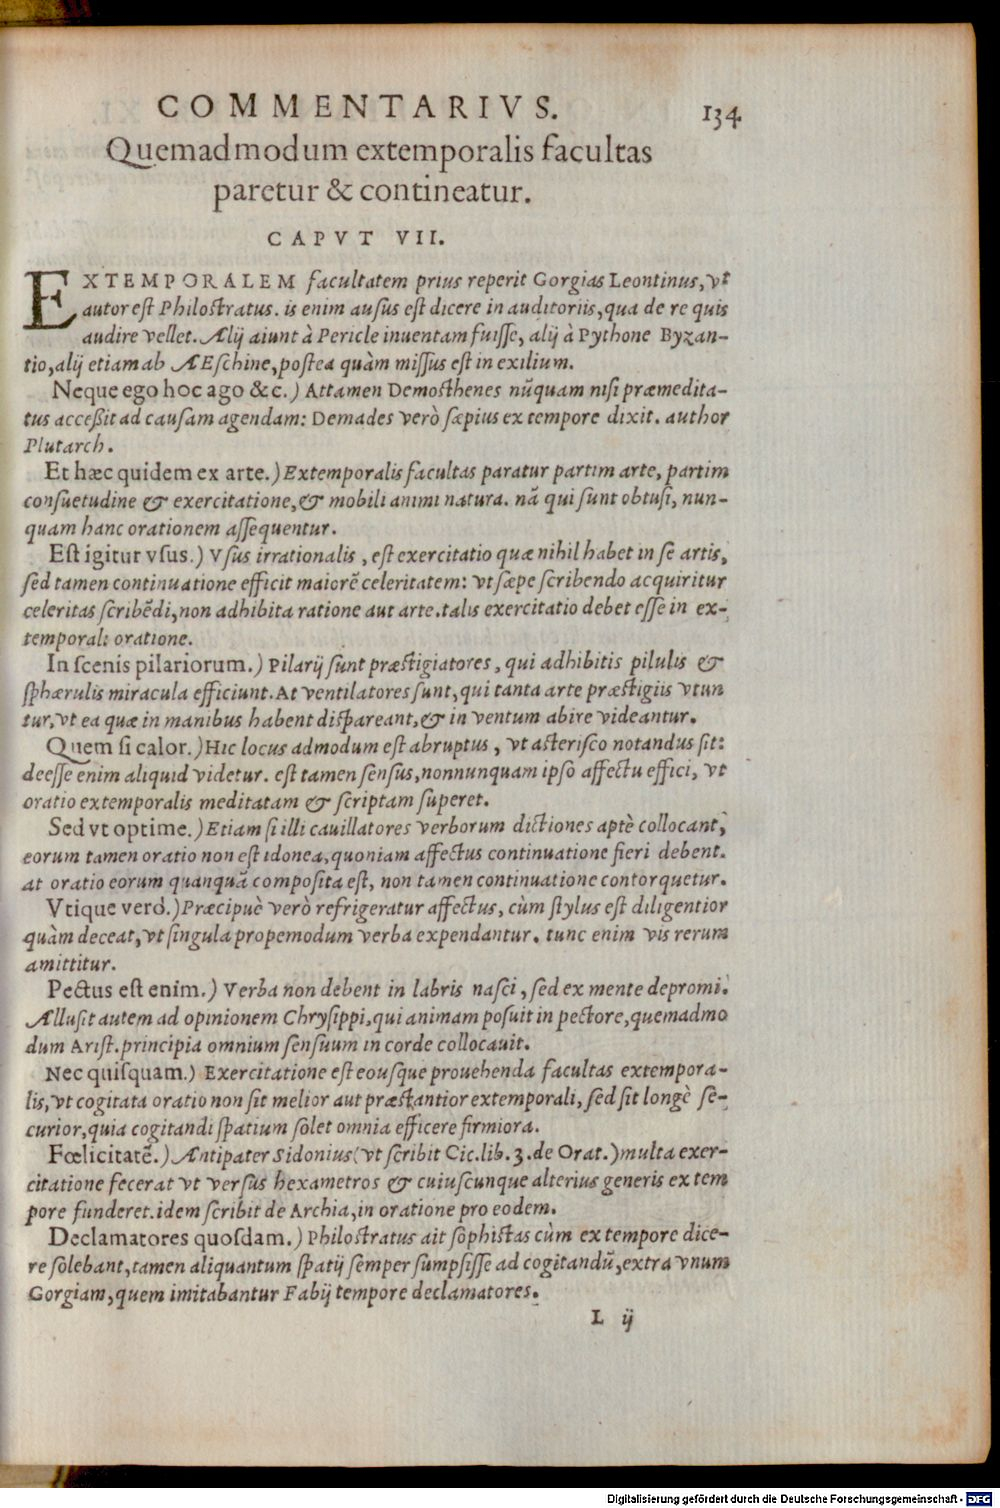 COMMENTARIVS. 134
Quemadmodum extemporalis facultas
paretur & contineatur.
CAPVT VII.
EXTEMPORALEM facultatem prius reperit Gorgias Leontinus, vt
autor est Philostratus. is enim ausus est dicere in auditoriis, qua de re quis
audire vellet. Alij aiunt à Pericle inuentam fuisse, alij à Pythone Byzan-
tio, alij etiam ab AEschine, postea quàm missus est in exilium.
Neque ego hoc ago &c.) Attamen Demosthenes nũquam nisi præmedita-
tus acceßit ad causam agendam: Demades verò sæpius ex tempore dixit. author
Plutarch.
Et hæc quidem ex arte.) Extemporalis facultas paratur partim arte, partim
consuetudine & exercitatione, & mobili animi natura. nã qui sunt obtusi, nun-
quam hanc orationem assequentur.
Est igitur vsus.) Vsus irrationalis, est exercitatio quæ nihil habet in se artis,
sed tamen continuatione efficit maiorẽ celeritatem: vt sæpe scribendo acquiritur
celeritas scribẽdi, non adhibita ratione aut arte. talis exercitatio debet esse in ex-
temporali oratione.
In scenis pilariorum.) Pilarij sunt præstigiatores, qui adhibitis pilulis &
sphærulis miracula efficiunt. At ventilatores sunt, qui tanta arte præstigiis vtun
tur, vt ea quæ in manibus habent dispareant, & in ventum abire videantur.
Quem si calor.) Hic locus admodum est abruptus, vt asterisco notandus sit:
deesse enim aliquid videtur. est tamen sensus, nonnunquam ipso affectu effici, vt
oratio extemporalis meditatam & scriptam superet.
Sed vt optime.) Etiam si illi cauillatores verborum dictiones aptè collocant,
eorum tamen oratio non est idonea, quoniam affectus continuatione fieri debent.
at oratio eorum quanquã composita est, non tamen continuatione contorquetur.
Vtique verò.) Præcipuè verò refrigeratur affectus, cùm stylus est diligentior
quàm deceat, vt singula propemodum verba expendantur. tunc enim vis rerum
amittitur.
Pectus est enim.) Verba non debent in labris nasci, sed ex mente depromi.
Allusit autem ad opinionem Chrysippi, qui animam posuit in pectore, quemadmo
dum Arist. principia omnium sensuum in corde collocauit.
Nec quisquam.) Exercitatione est eousque prouehenda facultas extempora-
lis, vt cogitata oratio non sit melior aut præstantior extemporali, sed sit longè se-
curior, quia cogitandi spatium solet omnia efficere firmiora.
Fœlicitatẽ.) Antipater Sidonius (vt scribit Cic. lib. 3. de Orat.) multa exer-
citatione fecerat vt versus hexametros & cuiuscunque alterius generis ex tem
pore funderet. idem scribit de Archia, in oratione pro eodem.
Declamatores quosdam.) Philostratus ait sophistas cùm ex tempore dice-
re solebant, tamen aliquantum spatij semper sumpsisse ad cogitandũ, extra vnum
Gorgiam, quem imitabantur Fabij tempore declamatores.
L ij
Digitalisierung gefördert durch die Deutsche Forschungsgemeinschaft - DFG